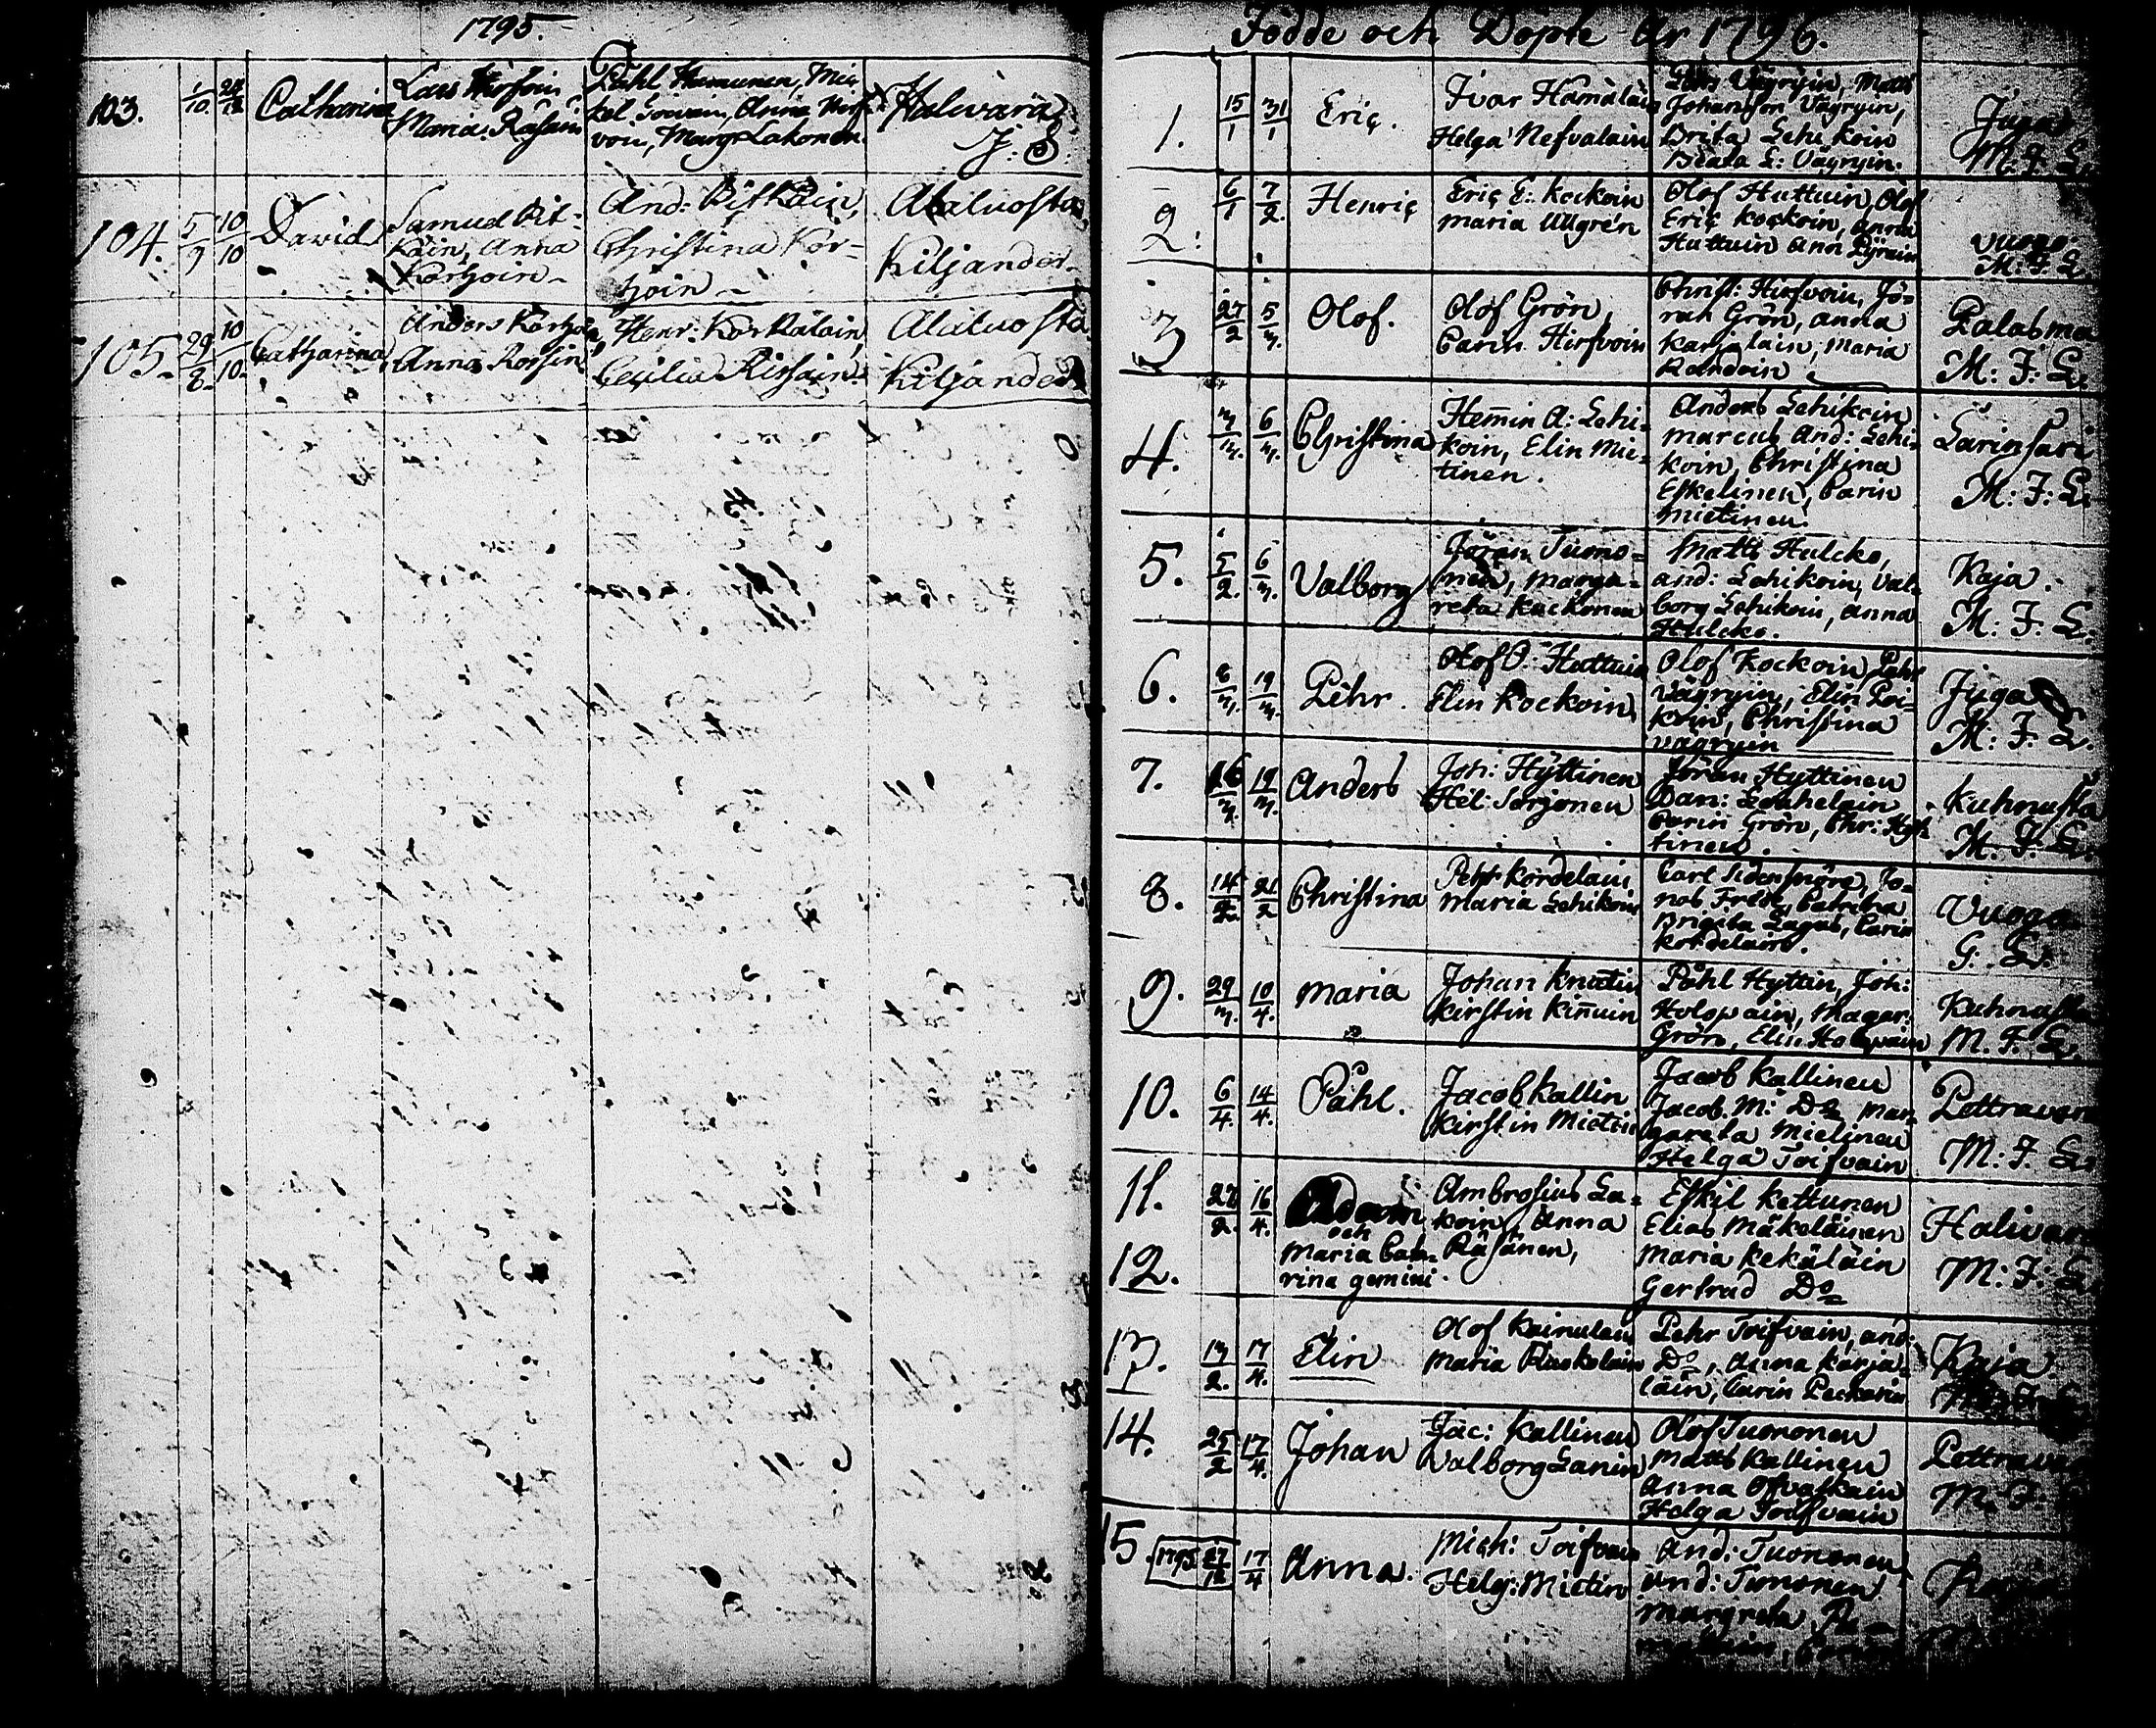 1795.
103. 1/10 Catharina
Maria Räsäin
Anna
Halivara
J: S:
104. 5/9 10/10 David
Samuel Pit-
käin, Anna
Korhoin
And: Pitkäin,
Christina Kor-
hoin
Alaluosta
Kiljander
105. 29/8 10/10 Catharina
Anders Korhoin,
Anna
Henr: Korkalain,
Cecilia Rissain
Alaluosta
Kiljander
Födde och Döpte År 1796.
1. 15/1 31/1 Eric.
Ivar Hämäläin
Helga Nefvalain
Matts
Johansson Vägryin,
Brita Lehikoin
Beata L: Vägryin.
Juga
M: F: L.
2. 6/1 7/2 Henric
Eric E: Kockoin
Maria Ullgrén
Olof Huttuin, Olof
Eric Kockoin, Anna
Huttuin Ann
Vuogo
M: F: L.
3 27/2 5/3. Olof.
Olof Grön,
Carin Hirfvoin
Christ: Hirfvoin, Jö-
ran Grön, Anna
Karjalain, Maria
Palasma
M: F: L.
4. 3/3. 6/3. Christina
Hemin A: Lehi-
koin, Elin Mie-
tinen.
Anders Lehikoin
Marcus And: Lehi-
koin, Christina
Eskelinen, Carin
Mietinen.
Larinsari
M: F: L.
5. 5/2. 6/3. Valborg
Jöran Tuono-
nen, Marga-
reta Kuckonen
Matts Hulcko,
And: Lehikoin, Val-
borg Lehikoin, Anna
Hulcko.
Kaja.
M: F: L.
6. 8/3. 19/3. Pehr.
Olof O: Huttuin
Elin Kockoin
Olof Kockoin, Pehr
Vägryin, Elin Poi-
koin, Christina
Vägryin
Juga
M: F: L.
7. 16/3. 19/3. Anders
Joh: Hyttinen
Hel: Sorjonen
Jöran Hyttinen
Dan:
Carin Grön, Chr: Hyt-
tinen.
Kuhnusta
M: F: L.
8. 14/2. 21/2 Christina
Pehr Kordelain,
Maria Lehikoin
Carl Sidensnöre, Jo-
nas Catrina
Brigita Lagus, Carin
Kordelain.
Vuogo
G: L.
9. 29/3. 10/4. Maria
Johan Knutin
Kirstin Kinuin
Påhl Hyttin, Joh:
Holopain, Magar:
Grön, Elin Holopain
Kuhnusta
M. F. L.
10. 6/4. 14/4. Påhl.
Jacob Kallin
Kirstin Mietin
Jacob Kallinen
Jacob M: Do Mar-
gareta Mietinen
Helga Toifvain
Pettravara
M: F. L.
11. 27/2. 16/4. Adam
och
12. Maria Cath-
rina gemini.
Ambrosius La-
koin, Anna
Räsänen,
Eskil Kettunen
Elias Mäkeläinen
Maria Kekäläin
Gertrud Do
Halivara
M: F: L
13. 13/2. 17/4. Elin
Olof Kainulain
Maria
Pehr Toifvain, And:
Do, Anna Karja-
lain, Carin Peckarin
Kaja
M: F. L.
14. 25/2 17/4. Johan
Jac: Kallinen
Valborg Lanin
Olof Tuononen
Matts Kallinen
Anna Ofvaskain
Helga Toifvain
Pettravara
M. F.
15. 1795 27/12 17/4 Anna.
Mich: Toifvain
Helg: Mietin
And: Tuononen
And: Tuononen
Margreta